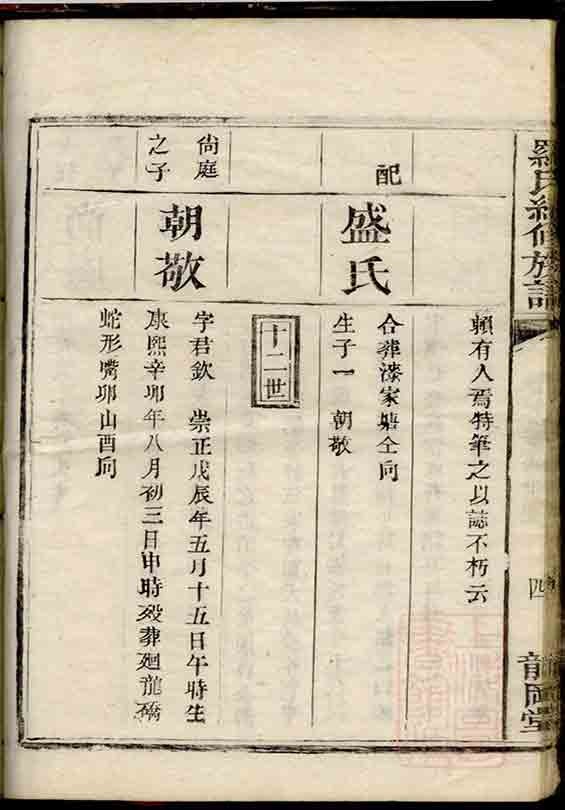 羅氏續修族譜
四
龍岡堂
賴有人焉特筆之以誌不朽云
配
盛氏
合葬漆家塘仝向
生子一 朝敬
十二世
尙庭
之子
朝敬
字君欽 崇正戊辰年五月十五日午時生
康熙辛卯年八月初三日申時歿葬廻龍橋
蛇形嘴卯山酉向